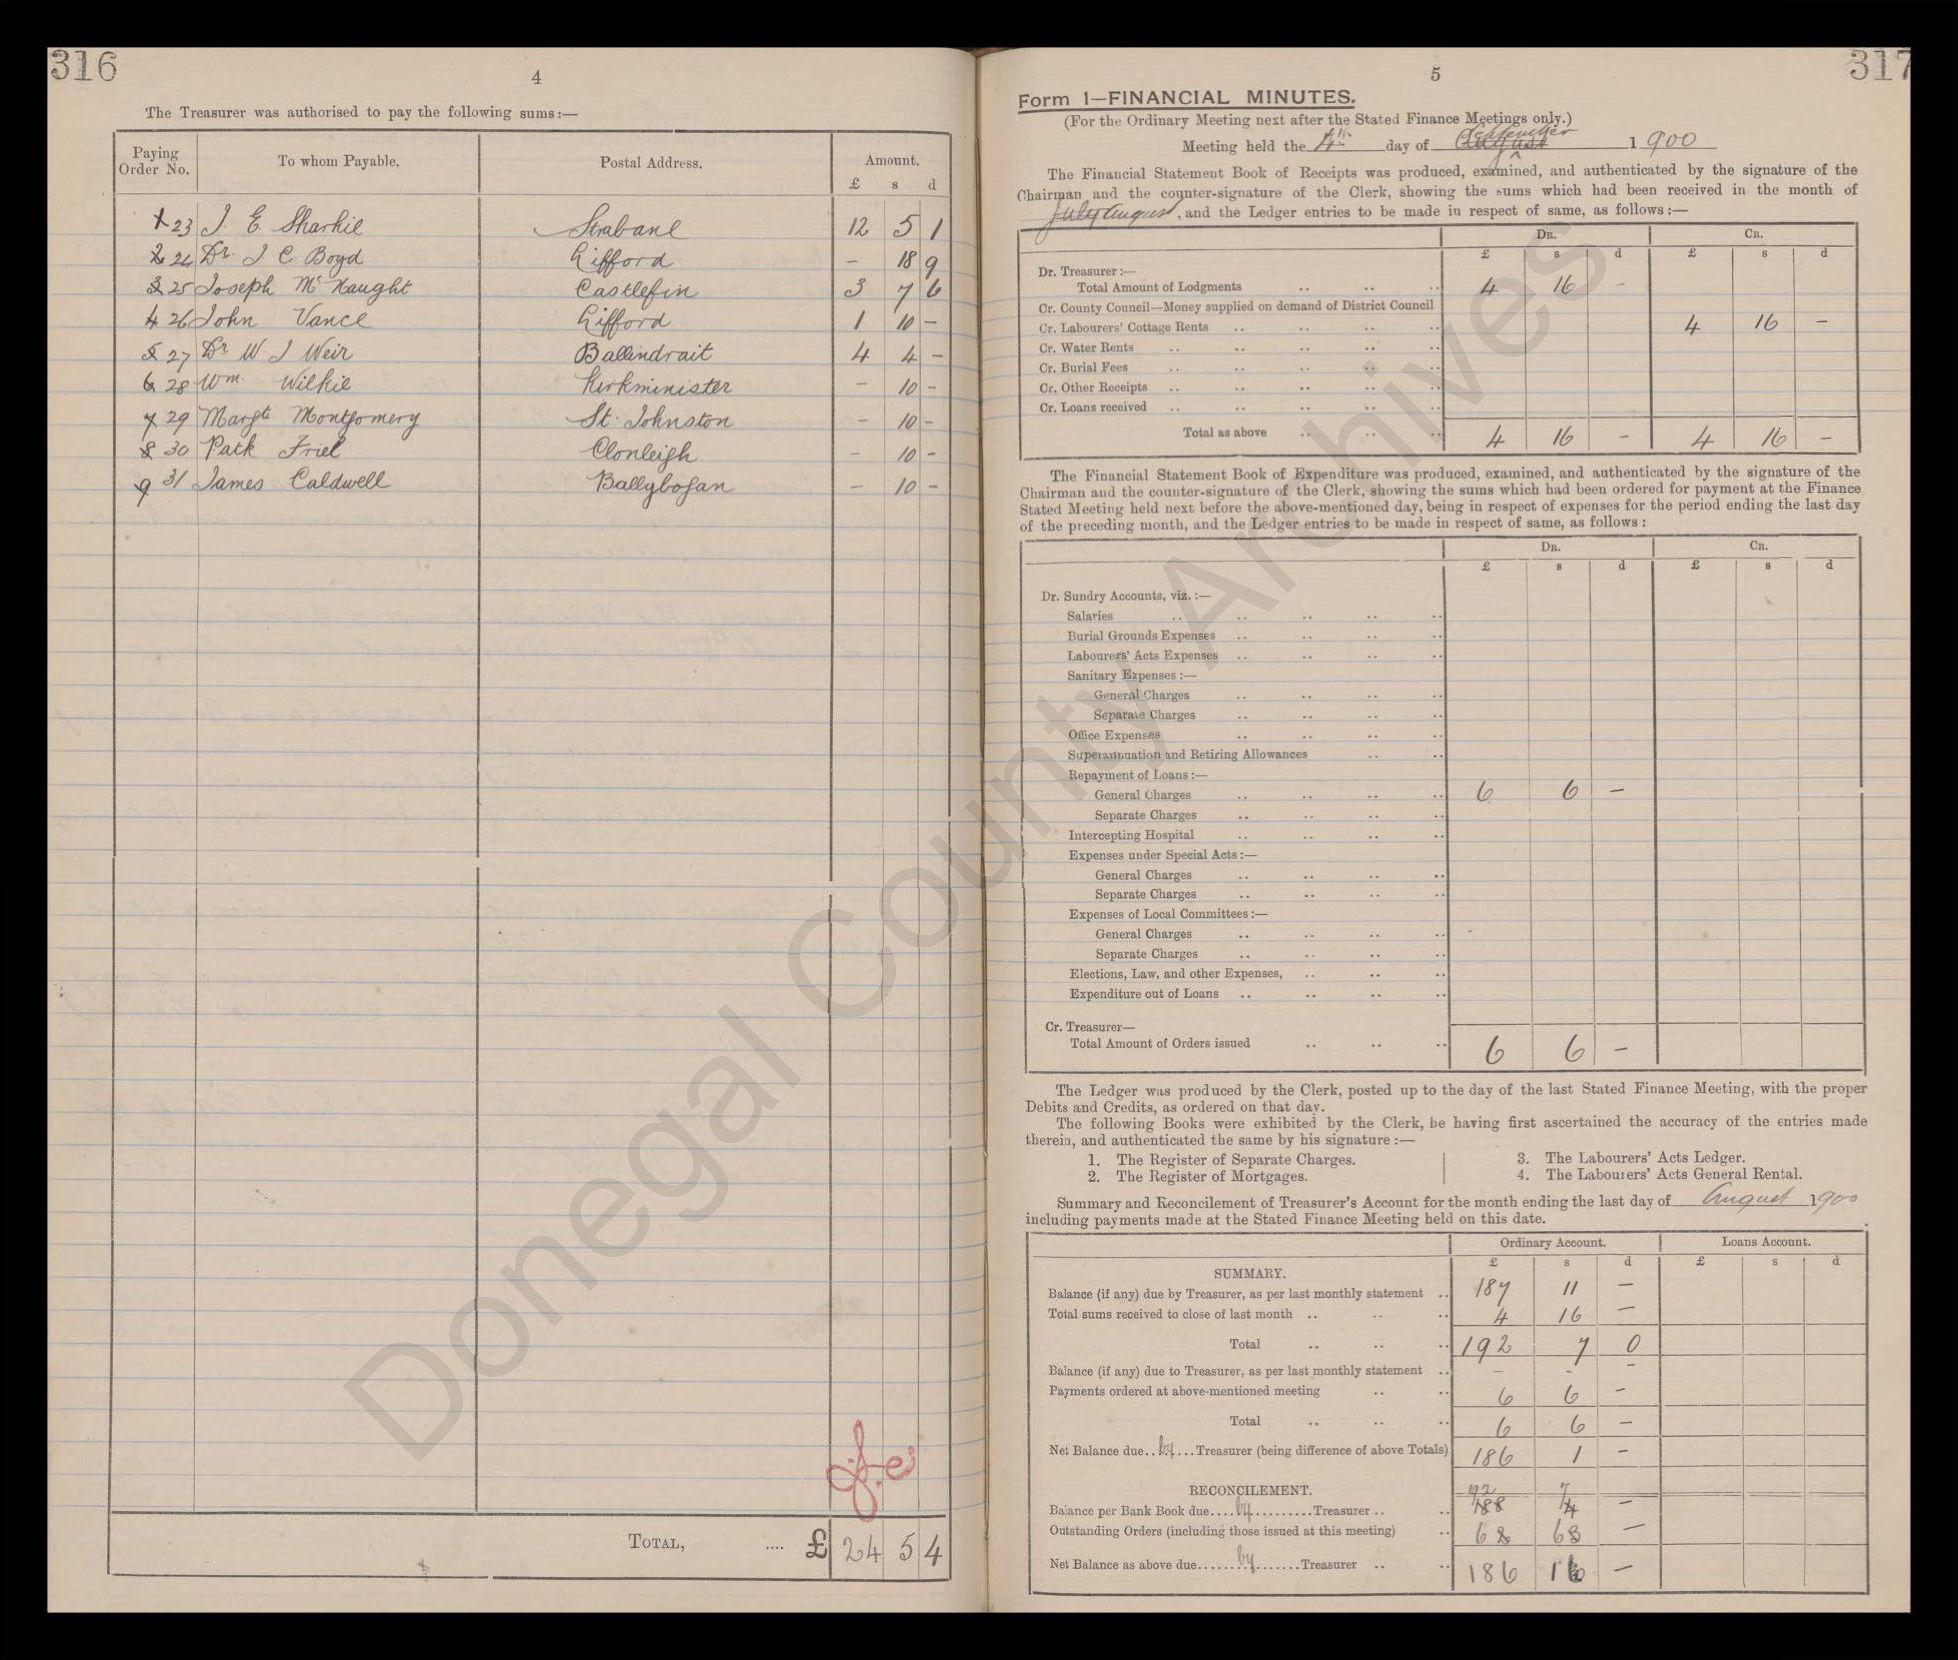 316
4
The Treasurer was authorised to pay the following sums:—
Paying Order No. To whom Payable. Postal Address. Amount.
£ s d
1 23 J. E. Sharkie Strabane 12 5 1
2 24 Dr. J C Boyd Lifford – 18 9
3 25 Joseph McNaught Castlefin 3 7 6
4 26 John Vance Lifford 1 10 –
5 27 Dr W. J Weir Ballindrait 4 4 –
6 28 Wm. Wilkie Kirkminister – 10 –
7 29 Margt Montgomery St. Johnston – 10 –
8 30 Patk Friel Clonleigh – 10 –
9 31 James Caldwell Ballybogan – 10 –
TOTAL, .... £ 24 5 4
317
5
Form 1—FINANCIAL MINUTES.
(For the Ordinary Meeting next after the Stated Finance Meetings only.)
Meeting held the 4th day of August September 1900
The Financial Statement Book of Receipts was produced, examined, and authenticated by the signature of the
Chairman and the counter-signature of the Clerk, showing the sums which had been received in the month of
July August, and the Ledger entries to be made in respect of same, as follows:—
DR. CR.
£ s d £ s d
Dr. Treasurer:—
Total Amount of Lodgments .. .. .. 4 16 -
Cr. County Council—Money supplied on demand of District Council
Cr. Labourers' Cottage Rents .. .. .. .. 4 16 –
Cr. Water Rents .. .. .. .. ..
Cr. Burial Fees .. .. .. .. ..
Cr. Other Receipts .. .. .. .. ..
Cr. Loans received .. .. .. .. ..
Total as above .. .. .. 4 16 – 4 16 –
The Financial Statement Book of Expenditure was produced, examined, and authenticated by the signature of the
Chairman and the counter-signature of the Clerk, showing the sums which had been ordered for payment at the Finance
Stated Meeting held next before the above-mentioned day, being in respect of expenses for the period ending the last day
of the preceding month, and the Ledger entries to be made in respect of same, as follows:
DR. CR.
£ s d £ s d
Dr. Sundry Accounts, viz.:—
Salaries .. .. .. .. ..
Burial Grounds Expenses .. .. .. ..
Labourers' Acts Expenses .. .. .. ..
Sanitary Expenses:—
General Charges .. .. .. ..
Separate Charges .. .. .. ..
Office Expenses .. .. .. ..
Superannuation and Retiring Allowances .. ..
Repayment of Loans:—
General Charges .. .. .. .. 6 6 –
Separate Charges .. .. .. ..
Intercepting Hospital .. .. .. ..
Expenses under Special Acts:—
General Charges .. .. .. ..
Separate Charges .. .. .. ..
Expenses of Local Committees:—
General Charges .. .. .. ..
Separate Charges .. .. .. ..
Elections, Law, and other Expenses, .. .. ..
Expenditure out of Loans .. .. .. ..
Cr. Treasurer—
Total Amount of Orders issued .. .. .. 6 6 –
The Ledger was produced by the Clerk, posted up to the day of the last Stated Finance Meeting, with the proper
Debits and Credits, as ordered on that day.
The following Books were exhibited by the Clerk, he having first ascertained the accuracy of the entries made
therein, and authenticated the same by his signature:—
1. The Register of Separate Charges. 3. The Labourers' Acts Ledger.
2. The Register of Mortgages. 4. The Labourers' Acts General Rental.
Summary and Reconcilement of Treasurer's Account for the month ending the last day of August 1900
including payments made at the Stated Finance Meeting held on this date.
Ordinary Account. Loans Account.
£ s d £ s d
SUMMARY.
Balance (if any) due by Treasurer, as per last monthly statement .. 187 11 –
Total sums received to close of last month .. .. .. 4 16 –
Total .. .. .. 192 7 0
Balance (if any) due to Treasurer, as per last monthly statement .. – - –
Payments ordered at above-mentioned meeting .. .. 6 6 –
Total .. .. .. 6 6 –
Net Balance due..by...Treasurer (being difference of above Totals) 186 1 –
RECONCILEMENT.
Balance per Bank Book due....by..........Treasurer .. ..
Outstanding Orders (including those issued at this meeting) ..
Net Balance as above due.......by.......Treasurer .. .. 186 1 –
Donegal County Archives